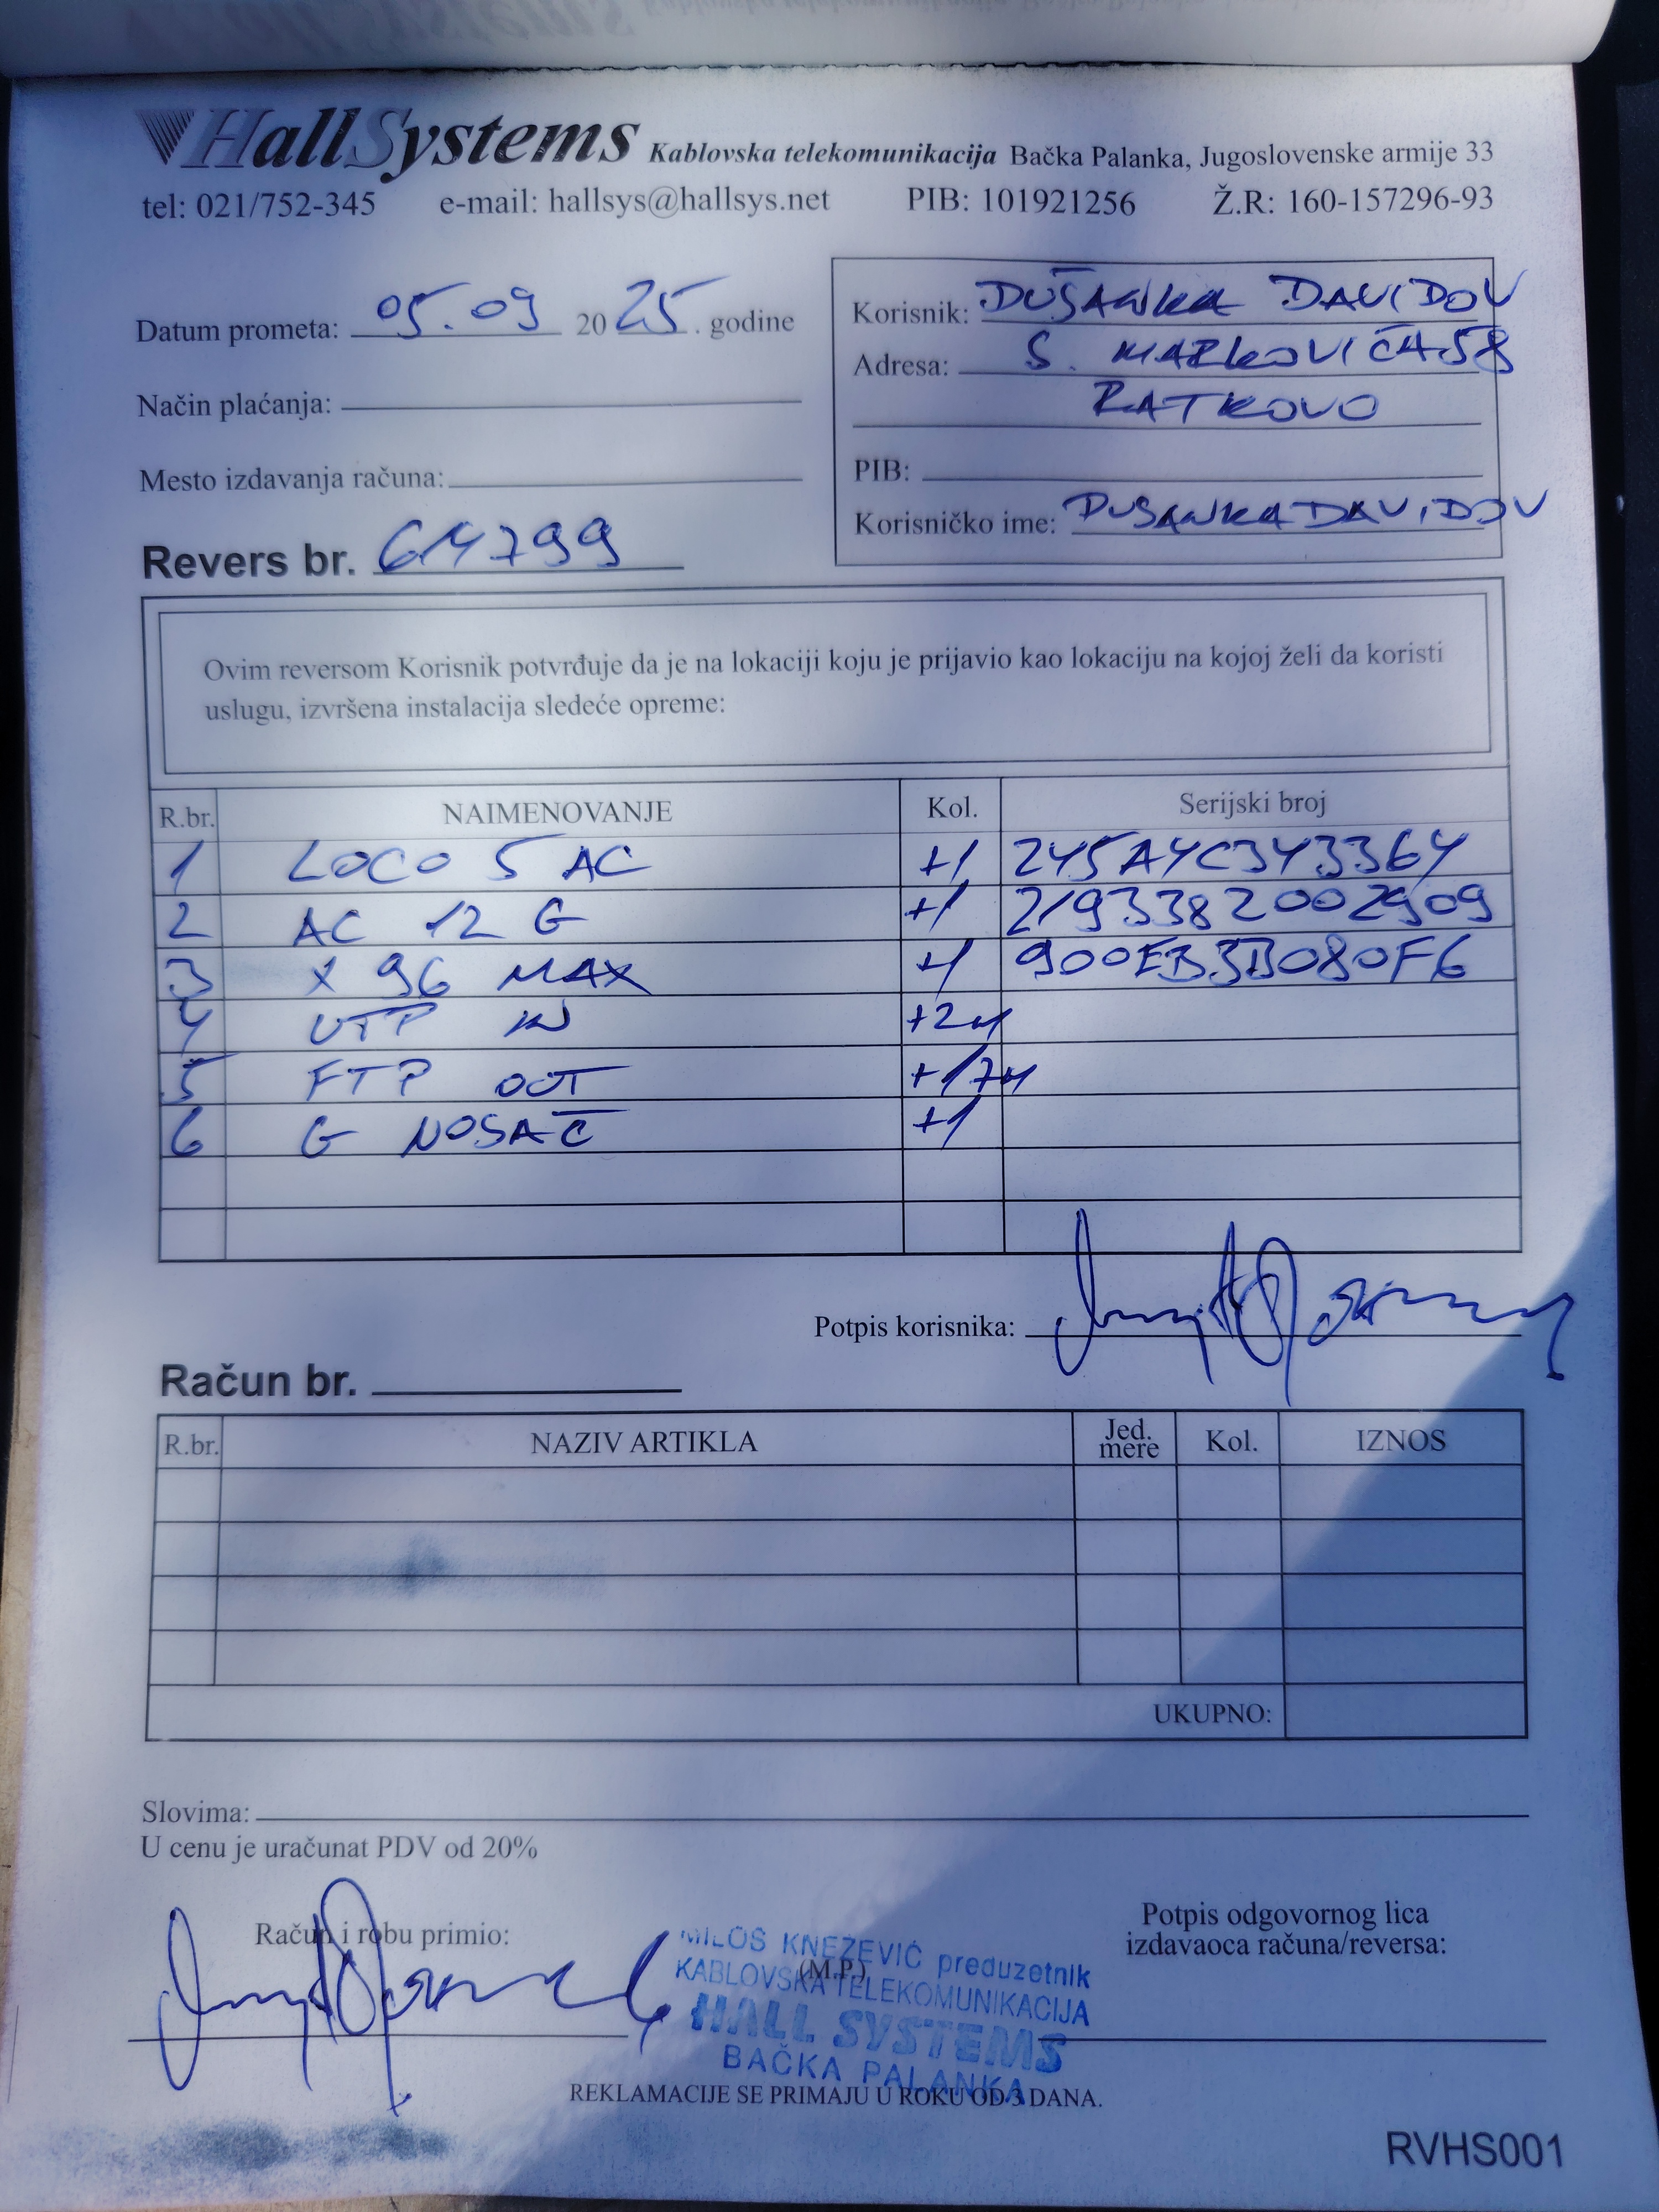 HallSystems Kablovska telekomunikacija Bačka Palanka, Jugoslovenske armije 33
tel: 021/752-345 e-mail: hallsys@hallsys.net PIB: 101921256 Ž.R: 160-157296-93
Datum prometa: 05.09 2025. godine
Način plaćanja:
Mesto izdavanja računa:
Revers br. 614799
Korisnik: DUŠANKA DAVIDOV
Adresa: S. MARKOVIĆA 58
RATKOVO
PIB:
Korisničko ime: DUSANKADAVIDOV
Ovim reversom Korisnik potvrđuje da je na lokaciji koju je prijavio kao lokaciju na kojoj želi da koristi
uslugu, izvršena instalacija sledeće opreme:
R.br. NAIMENOVANJE Kol. Serijski broj
1 LOCO 5 AC +1 245A4C343364
2 AC 12 G +1 2193382002909
3 X 96 MAX +1 900EB3B080F6
4 UTP IN +2m
5 FTP OUT +17m
6 G NOSAČ +1
Potpis korisnika:
Račun br.
R.br. NAZIV ARTIKLA Jed. mere Kol. IZNOS
UKUPNO:
Slovima:
U cenu je uračunat PDV od 20%
Račun i robu primio:
(M.P.)
MILOŠ KNEŽEVIĆ preduzetnik
KABLOVSKA TELEKOMUNIKACIJA
HALL SYSTEMS
BAČKA PALANKA
Potpis odgovornog lica
izdavaoca računa/reversa:
REKLAMACIJE SE PRIMAJU U ROKU OD 3 DANA.
RVHS001